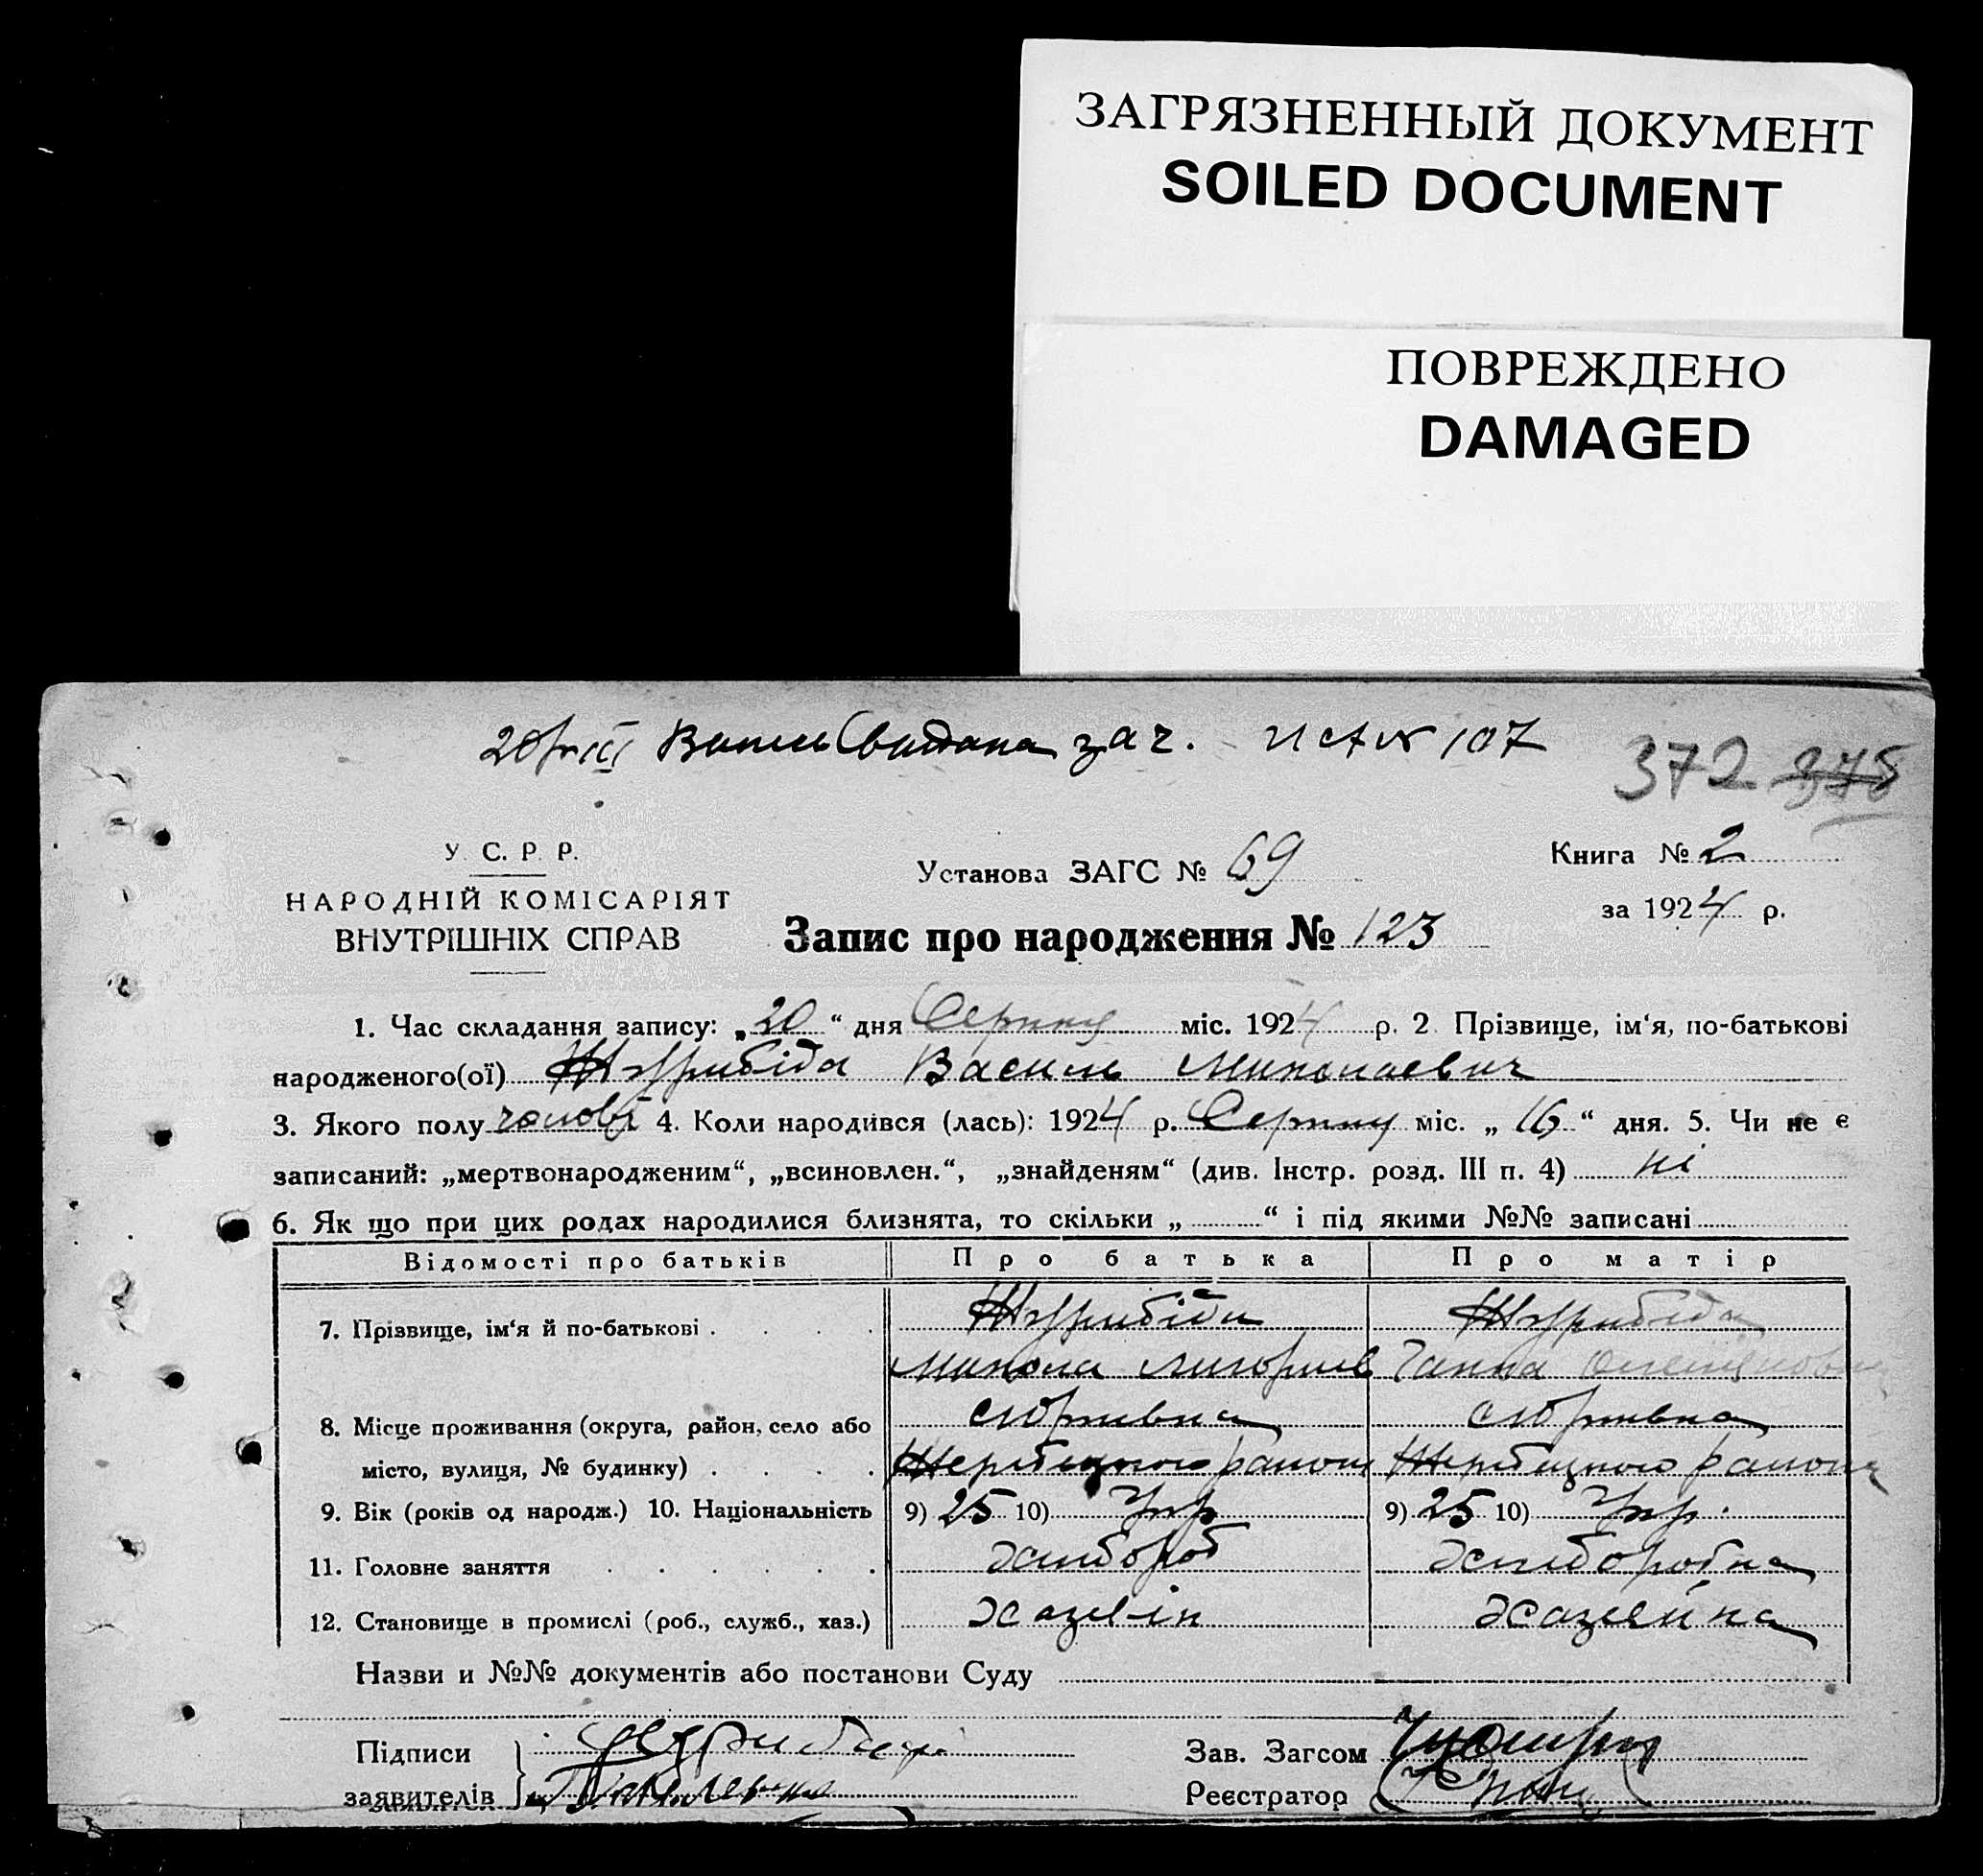 ЗАГРЯЗНЕННЫЙ ДОКУМЕНТ
SOILED DOCUMENT
ПОВРЕЖДЕНО
DAMAGED
107
372 375
У. С. Р. Р.
НАРОДНІЙ КОМІСАРІЯТ
ВНУТРІШНІХ СПРАВ
Установа ЗАГС № 69
Книга № 2
за 1924 р.
Запис про народження № 123
1. Час складання запису: „20“ дня Серпня міс. 1924 р. 2 Прізвище, ім‘я, по-батькові
народженого(ої) Журибіда Василь Миколаевич
3. Якого полу чолові 4. Коли народився (лась): 1924 р. Серпня міс. „16“ дня. 5. Чи не є
записаний: „мертвонародженим“, „всиновлен.“, „знайденям“ (див. Інстр. розд. III п. 4) ні
6. Як що при цих родах народилися близнята, то скільки „ “ і під якими №№ записані
Відомості про батьків Про батька Про матір
7. Прізвище, ім‘я й по-батькові Журибіда Журибіда
Микола Ганна
8. Місце проживання (округа, район, село або
місто, вулиця, № будинку) району району
9. Вік (років од народж.) 10. Національність 9) 25 10) Укр 9) 25 10) Укр.
11. Головне заняття хлібороб хліборобка
12. Становище в промислі (роб., служб., хаз.) хазяїн хазяйка
Назви и №№ документів або постанови Суду
Підписи
заявителів
Зав. Загсом
Реєстратор